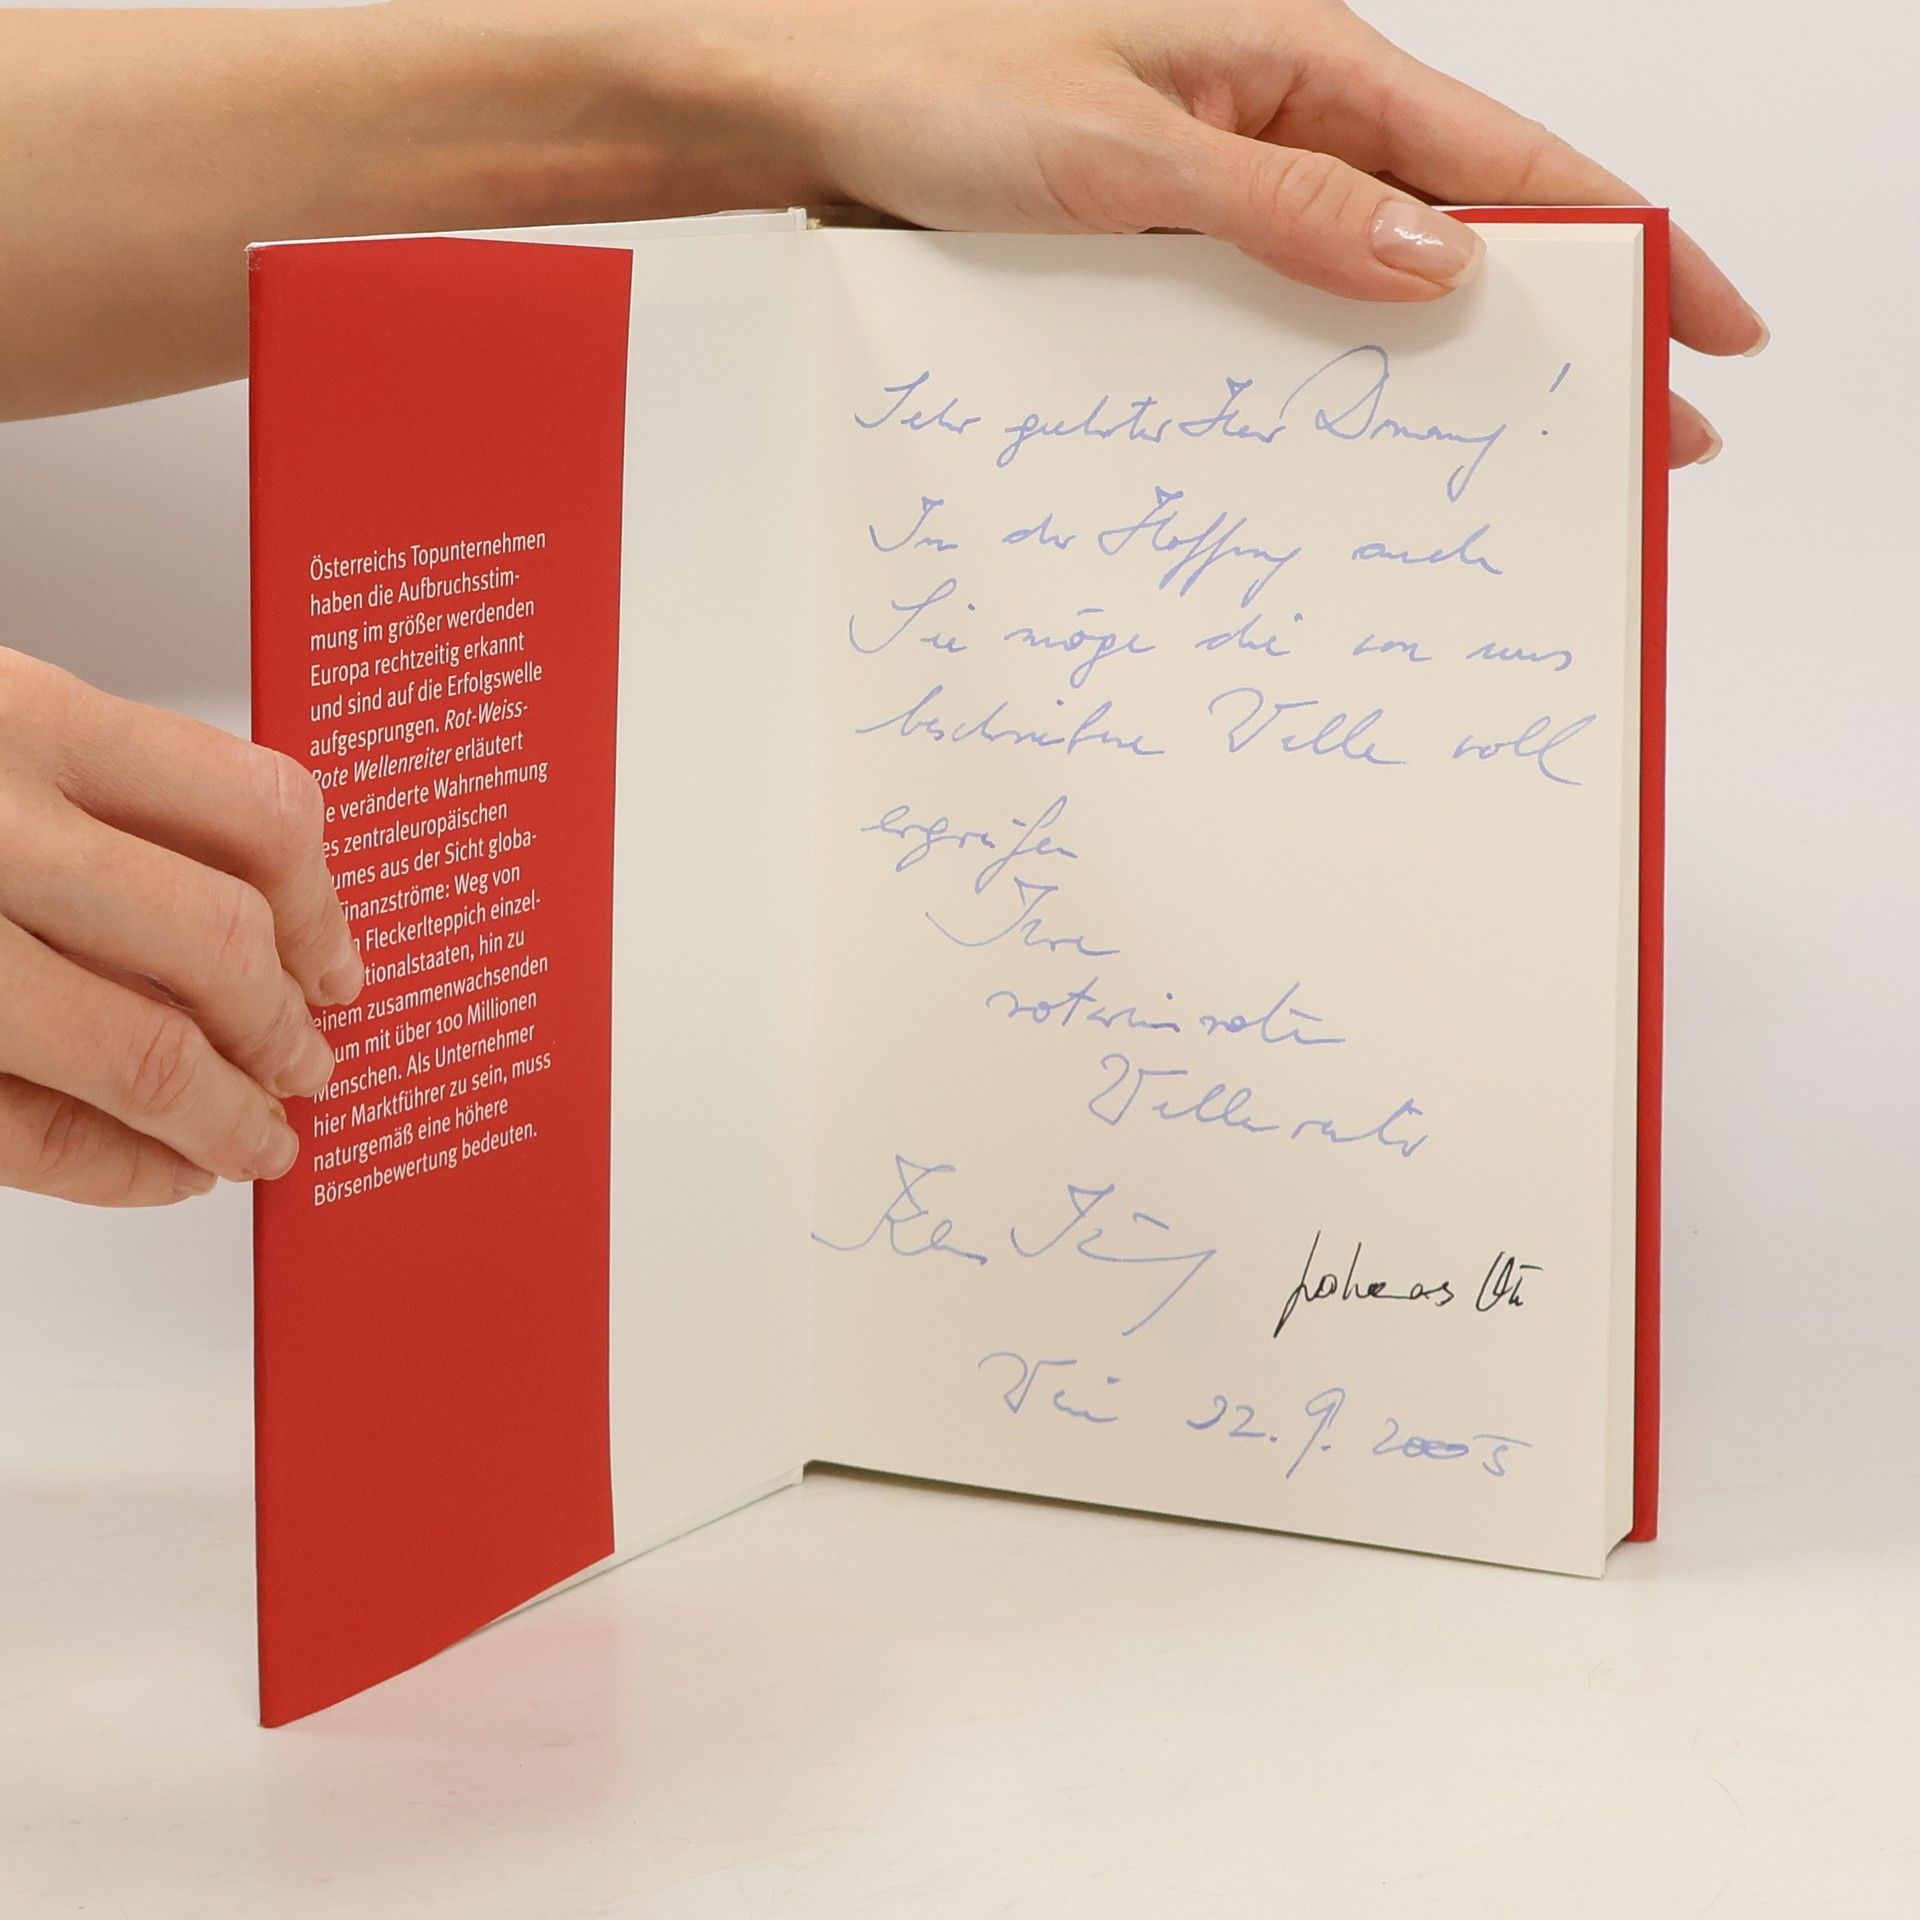 Österreichs Topunternehmen
haben die Aufbruchsstim-
mung im größer werdenden
Europa rechtzeitig erkannt
und sind auf die Erfolgswelle
aufgesprungen. Rot-Weiss-
Rote Wellenreiter erläutert
e veränderte Wahrnehmung
es zentraleuropäischen
umes aus der Sicht globa-
inanzströme: Weg von
Fleckerlteppich einzel-
tionalstaaten, hin zu
einem zusammenwachsenden
um mit über 100 Millionen
Menschen. Als Unternehmer
hier Marktführer zu sein, muss
naturgemäß eine höhere
Börsenbewertung bedeuten.
Sehr geehrter Herr !
In der Hoffnung auch
Sie möge die von uns
beschriebene Welle voll
ergreifen
Ihre
rotweissroten
Wellenreiter
Wien 22. 9. 2005